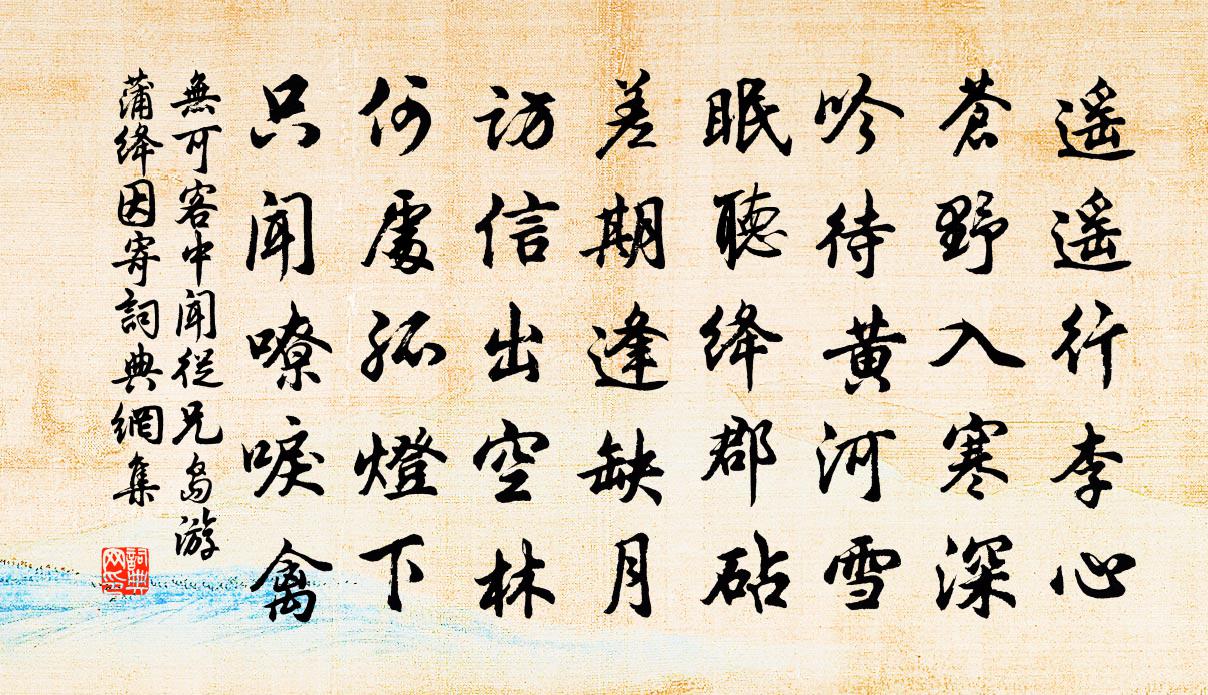 遥遥行李心
蒼野入寒深
吟待黄河雪
眠聽绛郡砧
差期逢缺月
訪信出空林
何處孤燈下
只聞嘹唳禽
無可客中闻從兄岛游
蒲绛因寄詞典網集